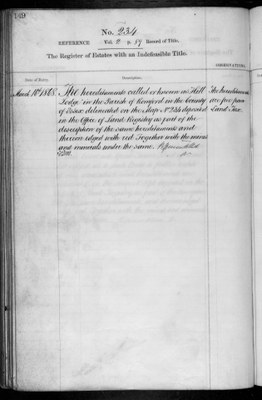 169
No. 234
REFERENCE Vol. 2 p. 59 Record of Title.
The Register of Estates with an Indefeasible Title.
Date of Entry.
Description.
OBSERVATIONS.
March 10th 1865. The hereditaments called or known as Hill The hereditaments
Lodge in the Parish of Romford in the County are free from
of Essex delineated on the Map No. 234 deposited Land Tax.
in the Office of Land Registry as part of the
description of the same hereditaments and
thereon edged with red Together with the mines
and minerals under the same.